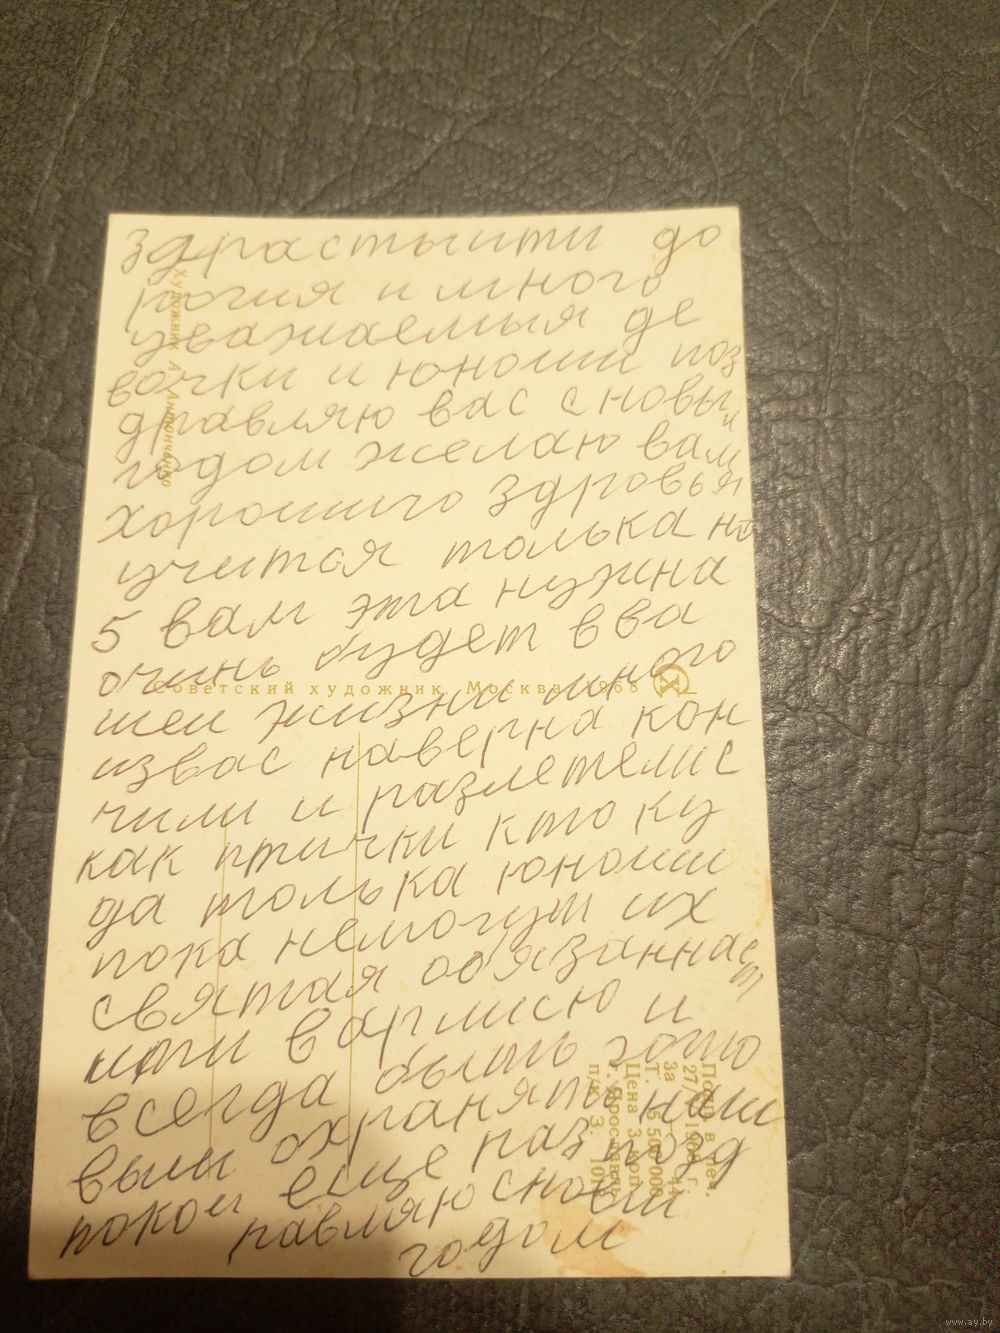 здрастыити до
рогия и много
уважаемыя де
вочки и юноши поз
дравляю вас с новы
м
годом желаю вам
хорошиго здоровья
учится только на
5 вам эта нужна
очинь будет в ва
шеи жизни много
извас наверна кон
чили и разлетелис
как птички кто ку
да только юноши
пока немогут их
святая обязаннас
т
ити в армию и
всегда быть гото
выи охранять наш
покои еще раз позд
равляю сновым
годом
Художник А. Антонченко
Советский художник. Москва. 1968
Подп. в печ.
27/
Т. 5 500 000
Цена 3 коп.
г. Ярославль
п/к. З. 10
www.ay.by